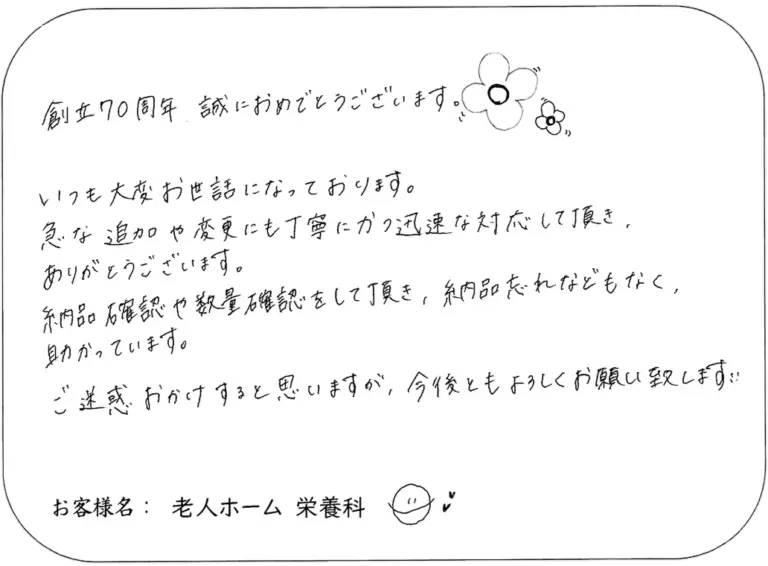 創立70周年 誠におめでとうございます。
いつも大変お世話になっております。
急な追加や変更にも丁寧にかつ迅速な対応して頂き、
ありがとうございます。
納品確認や数量確認をして頂き、納品忘れなどもなく、
助かっています。
ご迷惑おかけすると思いますが、今後ともよろしくお願い致します
お客様名： 老人ホーム 栄養科